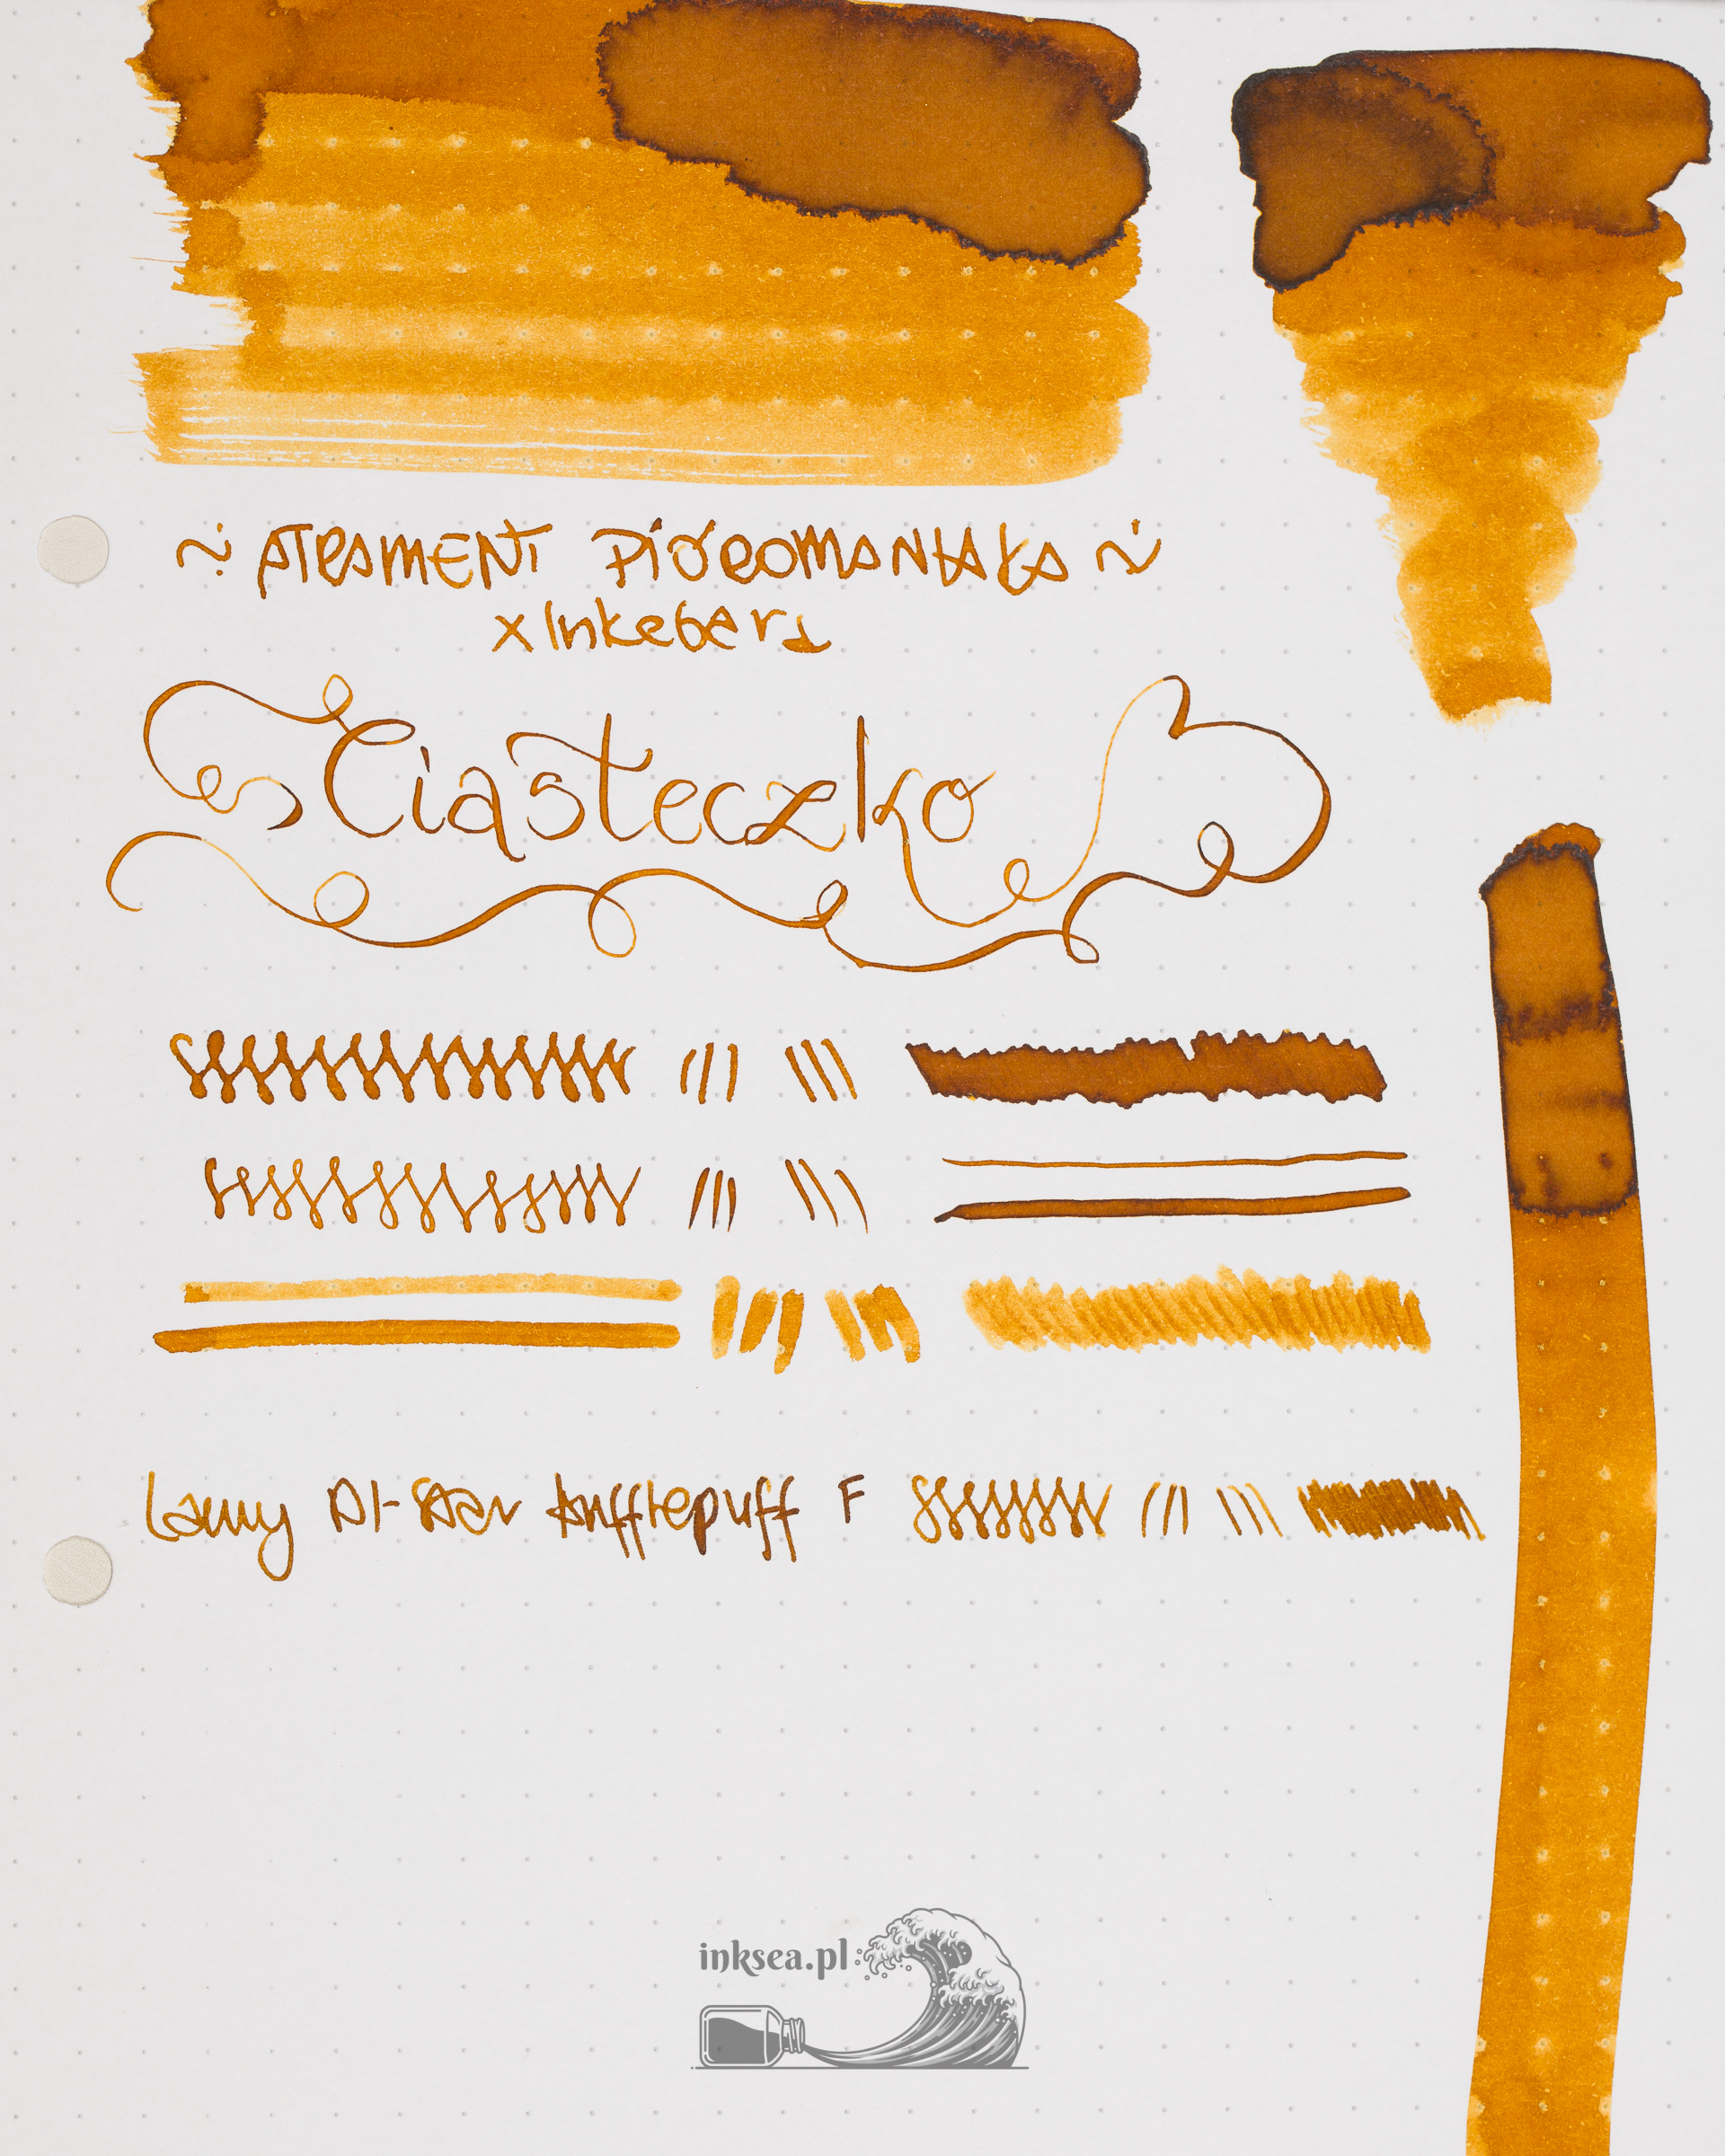 ~ ATRAMENT PIÓROMANIAKA ~
x Inkebara
Ciasteczko
Lamy Al-Star Hufflepuff F
inksea.pl